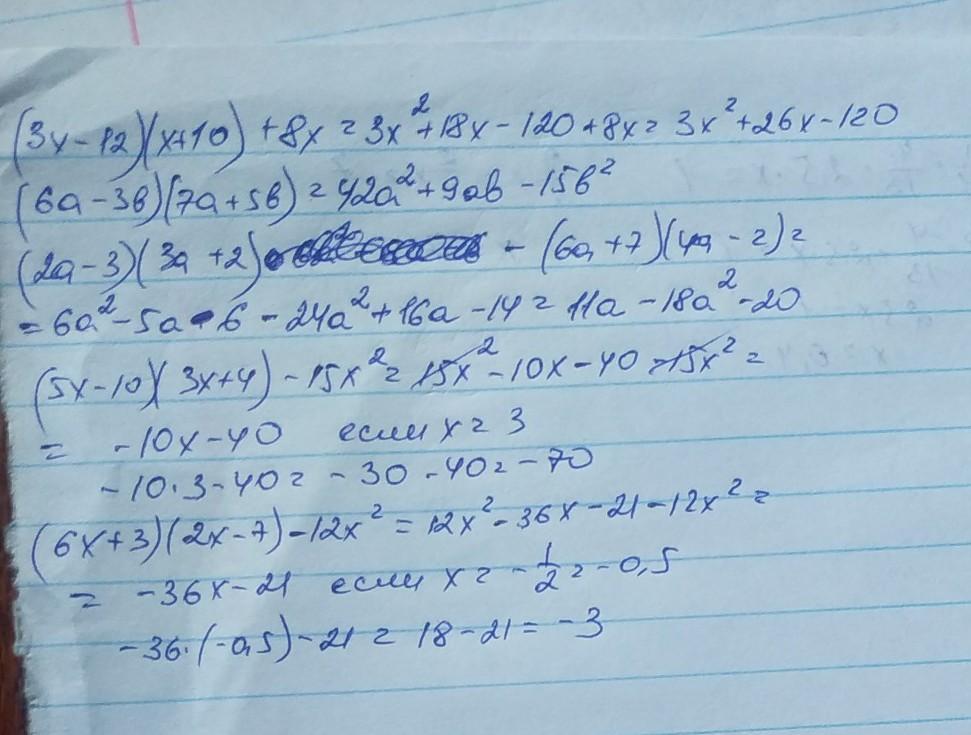 (3x-12)(x+10)+8x=3x²+18x-120+8x=3x²+26x-120
(6a-3b)(7a+5b)=42a²+9ab-15b²
(2a-3)(3a+2) - (6a+7)(4a-2)=
=6a²-5a-6-24a²+16a-14=11a-18a²-20
(5x-10)(3x+4)-15x²=15x²-10x-40-15x²=
= -10x-40 если x=3
-10·3-40=-30-40=-70
(6x+3)(2x-7)-12x²=12x²-36x-21-12x²=
= -36x-21 если x=-1/2=-0,5
-36·(-0,5)-21=18-21=-3